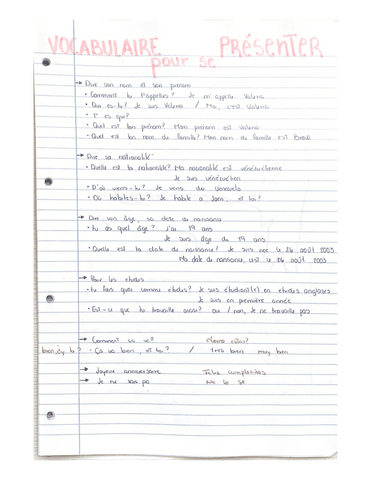 VOCABULAIRE PRÉSENTER
pour se
→ Dire son nom et son prénom
• Comment tu t'appelles? Je m'appelle Valeria
• Qui es-tu? Je suis Valeria / Moi, c'est Valeria
• T' es qui?
• Quel est ton prénom? Mon prénom est Valeria
• Quel est ton nom de famille? Mon nom de famille est
→ Dire sa nationalité
• Quelle est ta nationalité? Ma nationalité est vénézuélienne
Je suis vénézuélien
• D'où viens-tu? Je viens du Venezuela
• Où habites-tu? Je habite a Jaen, et toi?
→ Dire son âge, sa date de naissance
• tu as quel âge? J'ai 19 ans
Je suis âge de 19 ans
• Quelle est ta date de naissance? Je suis née le 06 août 2003
Ma date de naissance, est le 06 août 2003
→ Pour les études
• tu fais quoi comme études? Je suis étudiant(e) en études anglaises
Je suis en première année
• Est-ce que tu travaille aussi? oui / non, Je ne travaille pas
→ Comment ça va? ¿Como estas?
bien, ¿y tu? • Ça va bien, et toi? / Très bien muy bien
→ Joyeux anniversaire Feliz cumpleaños
→ Je ne sais pa No lo sé